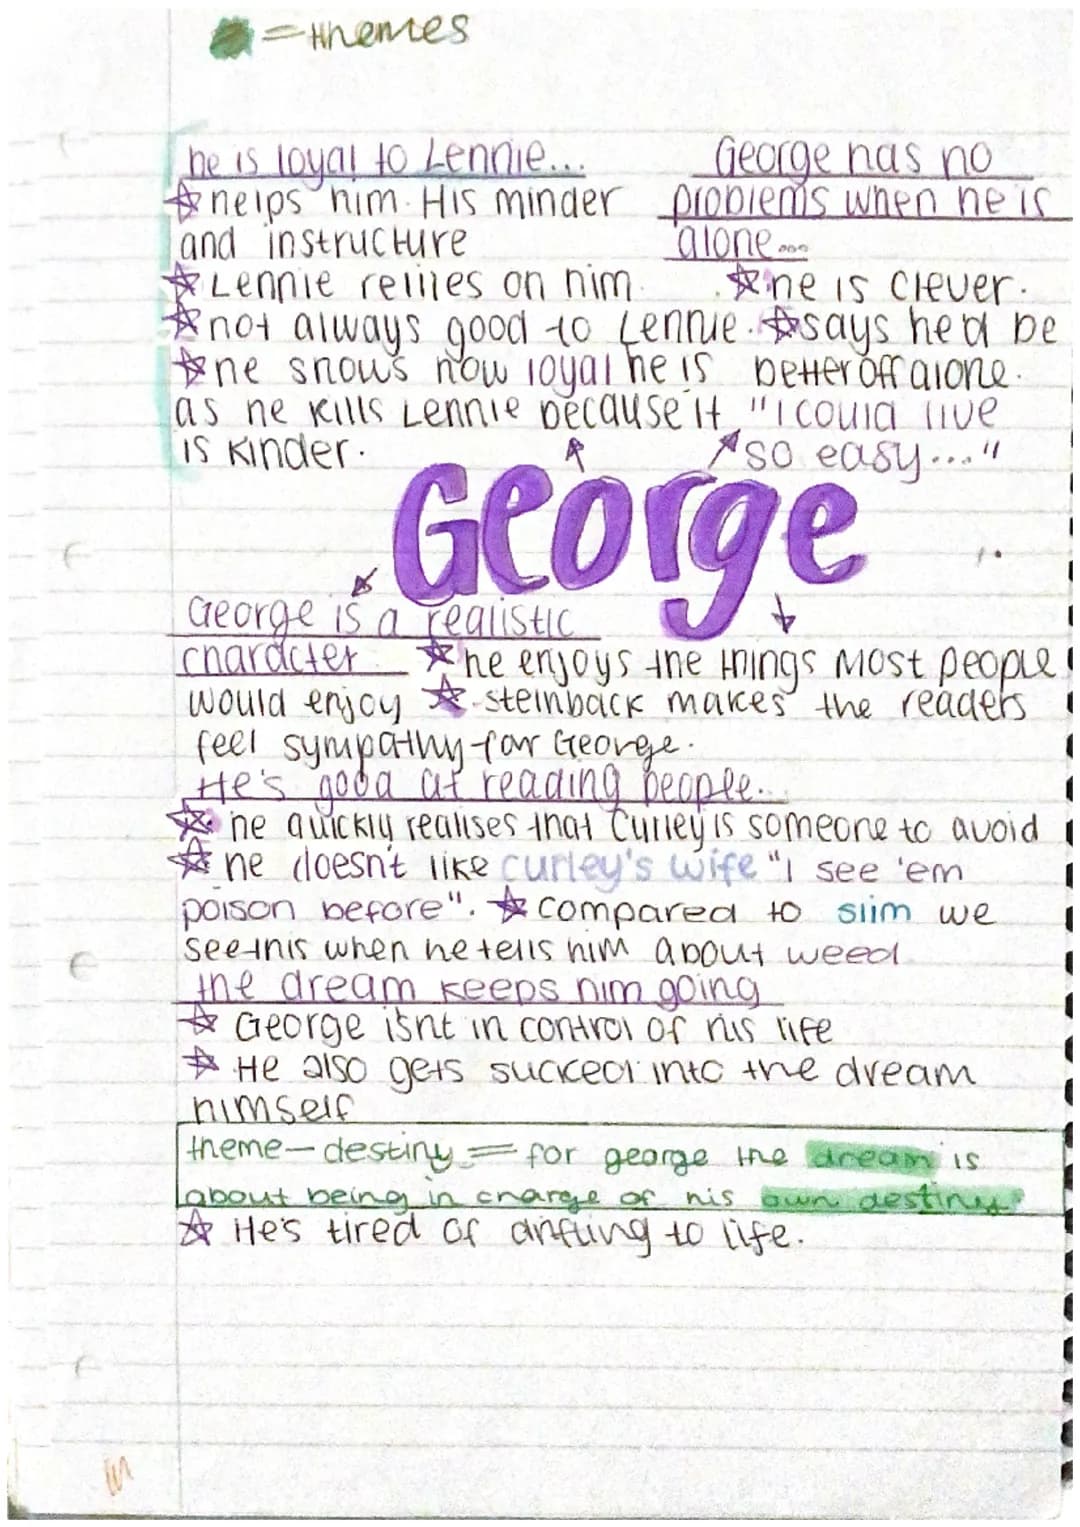 = themes
he is loyal to Lennie...
☆ helps him. His minder
and instructure
☆ Lennie reliies on him.
☆ not always good to Lennie.
☆ he shows how loyal he is
as he kills Lennie because it
is kinder.
George has no
problems when he is
alone...
☆ he is clever.
☆ says he'd be
better off alone.
"I could live
so easy..."
George
George is a realistic
character ☆ he enjoys the things most people
would enjoy ☆ steinback makes the readers
feel sympathy for George.
He's good at reading people...
☆ he quickly realises that Curley is someone to avoid
☆ he doesn't like curley's wife "I see 'em
poison before". ☆ compared to slim we
see this when he tells him about weed
the dream keeps him going
☆ George isnt in control of his life
☆ He also gets sucked into the dream
himself
theme - destiny = for george the dream is
about being in charge of his own destiny
☆ He's tired of drifting to life.